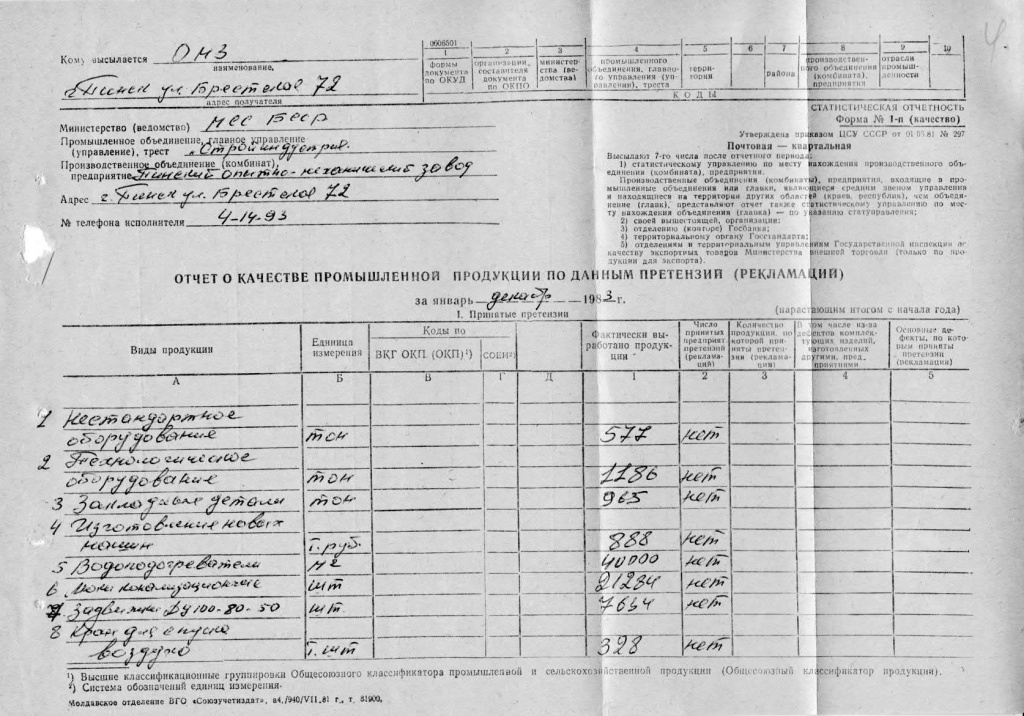 4
Кому высылается ОМЗ
наименование,
г. Пинск ул. Брестская 72
адрес получателя
Министерство (ведомство) МСС БССР
Промышленное объединение, главное управление
(управление), трест „Стройиндустрия“
Производственное объединение (комбинат),
предприятие Пинский опытно-механический завод
Адрес г. Пинск ул. Брестская 72
№ телефона исполнителя 4-14-93
0606501
1 2 3 4 5 6 7 8 9 10
формы документа по ОКУД
организации, составителя документа по ОКПО
министерства (ведомства)
промышленного объединения, главного управления (управления), треста
территории
района
производственного объединения (комбината), предприятия
отрасли промышленности
КОДЫ
СТАТИСТИЧЕСКАЯ ОТЧЕТНОСТЬ
Форма № 1-п (качество)
Утверждена приказом ЦСУ СССР от 01.06.81 № 297
Почтовая — квартальная
Высылают 7-го числа после отчетного периода:
1) статистическому управлению по месту нахождения производственного объединения (комбината), предприятия.
Производственные объединения (комбинаты), предприятия, входящие в промышленные объединения или главки, являющиеся средним звеном управления
и находящиеся на территории других областей (краев, республик), чем объединение (главк), представляют отчет также статистическому управлению по месту нахождения объединения (главка) — по указанию статуправления;
2) своей вышестоящей, организации;
3) отделению (конторе) Госбанка;
4) территориальному органу Госстандарта;
5) отделениям и территориальным управлениям Государственной инспекции по
качеству экспортных товаров Министерства внешней торговли (только по продукции для экспорта).
ОТЧЕТ О КАЧЕСТВЕ ПРОМЫШЛЕННОЙ ПРОДУКЦИИ ПО ДАННЫМ ПРЕТЕНЗИЙ (РЕКЛАМАЦИЙ)
за январь — декабрь 1983 г.
I. Принятые претензии
(нарастающим итогом с начала года)
Виды продукции
Единица измерения
Коды по
ВКГ ОКП. (ОКП)¹)
СОЕИ²)
Фактически выработано продукции
Число принятых предприят. претензий (рекламаций)
Количество продукции, по которой приняты претензии (рекламации)
В том числе из-за дефектов комплектующих изделий, изготовленных другими, предприятиями
Основные дефекты, по которым приняты претензии (рекламации)
А Б В Г Д 1 2 3 4 5
1 Нестандартное
оборудование тон 577 нет
2 Технологическое
оборудование тон 1186 нет
3 Закладные детали тон 965 нет
4 Изготовление новых
машин т. руб. 888 нет
5 Водоподогреватели м2 40000 нет
6 Люки канализационные шт 21284 нет
7. Задвижки Ду 100-80-50 шт. 7654 нет
8 Кран для спуска
воздуха т. шт 328 нет
¹) Высшие классификационные группировки Общесоюзного классификатора промышленной и сельскохозяйственной продукции (Общесоюзный классификатор продукции).
²) Система обозначений единиц измерения.
Молдавское отделение ВГО «Союзучетиздат», з4./940/VII.81 г., т. 81900,